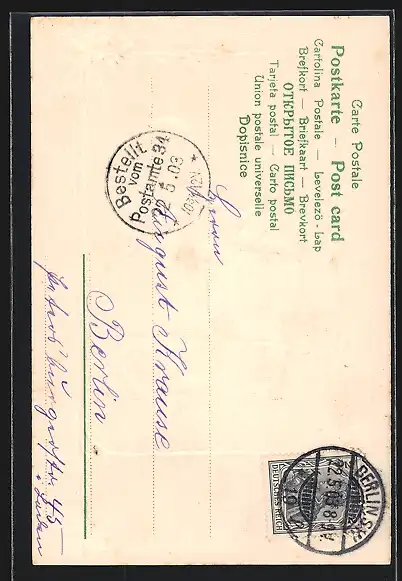 Carte Postale
Postkarte — Post card
Cartolina Postale — Levelező-Lap
Brefkort — Briefkaart — Brevkort
ОТКРЫТОЕ ПИСЬМО
Tarjeta postal — Carto postal
Union postale universelle
Dopisnice
BERLIN S.W.
22.5.03.8-9
DEUTSCHES REICH
Bestellt
vom
Postamte 34
22.5.03
Herrn
August Krause
Berlin
Petersburgerstr. 45
Laden